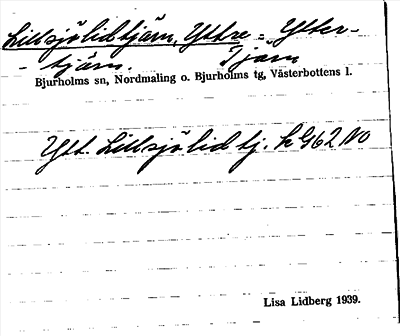 Lillsjölidtjärn, Yttre = Ytter-
- tjärn. Tjärn
Bjurholms sn, Nordmaling o. Bjurholms tg, Västerbottens l.
Ytt. Lillsjölid tj. h G62 NO
Lisa Lidberg 1939.